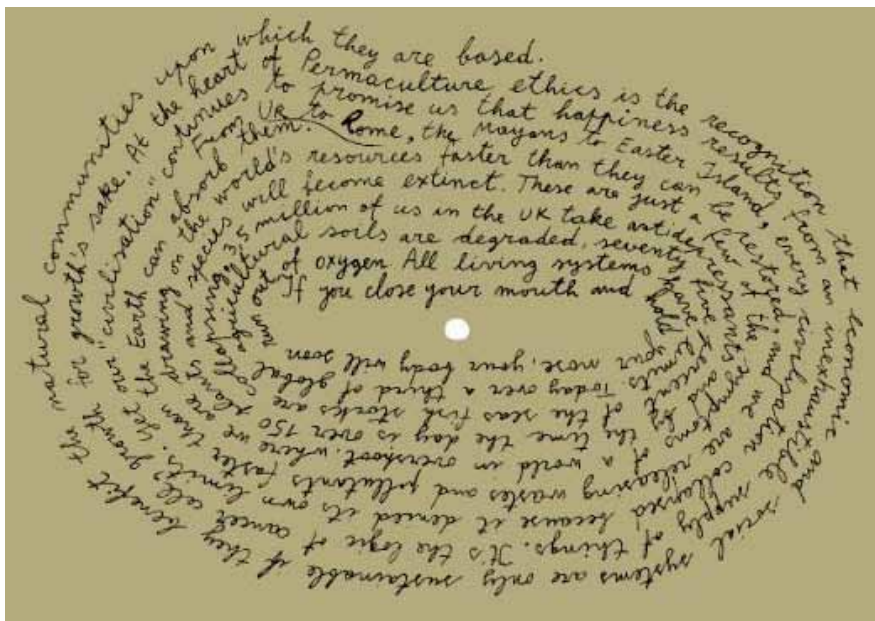 If you close your mouth and hold your nose, your body will soon
run out of oxygen All living systems have limits Today over a third of global
agricultural soils are degraded, seventy five percent of the seas fish stocks are
collapsing, 3.5 million of us in the UK take antidepressants and by the time the day is over 150
plants and species will become extinct. These are just a few of the symptoms of a world in overshoot, where we are
drawing on the world's resources faster than they can be restored, and we are releasing wastes and pollutants faster than
the Earth can absorb them. From UR to Rome, the Mayans to Easter Island, every civilization collapsed because it denied its own limits. Yet
our "civilisation" continues to promise us that happiness results from an inexhaustible supply of things. It's the logic of cancer cells growth
for growth's sake. At the heart of Permaculture ethics is the recognition that economic and social systems are only sustainable if they benefit the
natural communities upon which they are based.